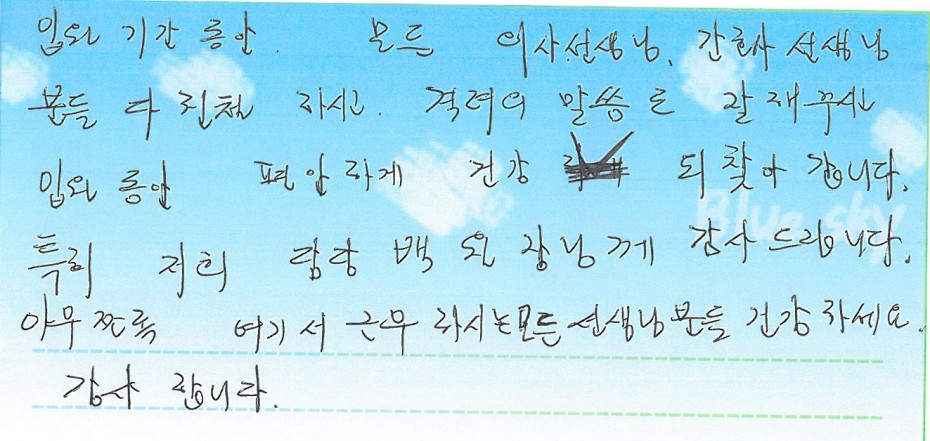 입원 기간 동안. 모든 의사선생님, 간호사 선생님
분들 다 친절 하시고. 격려의 말씀도 잘 해주시고
입원 동안 편안하게 건강 되찾아 갑니다.
특히 저희 담당 백 원장님께 감사드립니다.
아무쪼록 여기서 근무 하시는 모든 선생님 분들 건강 하세요.
감사 합니다.
Blue sky